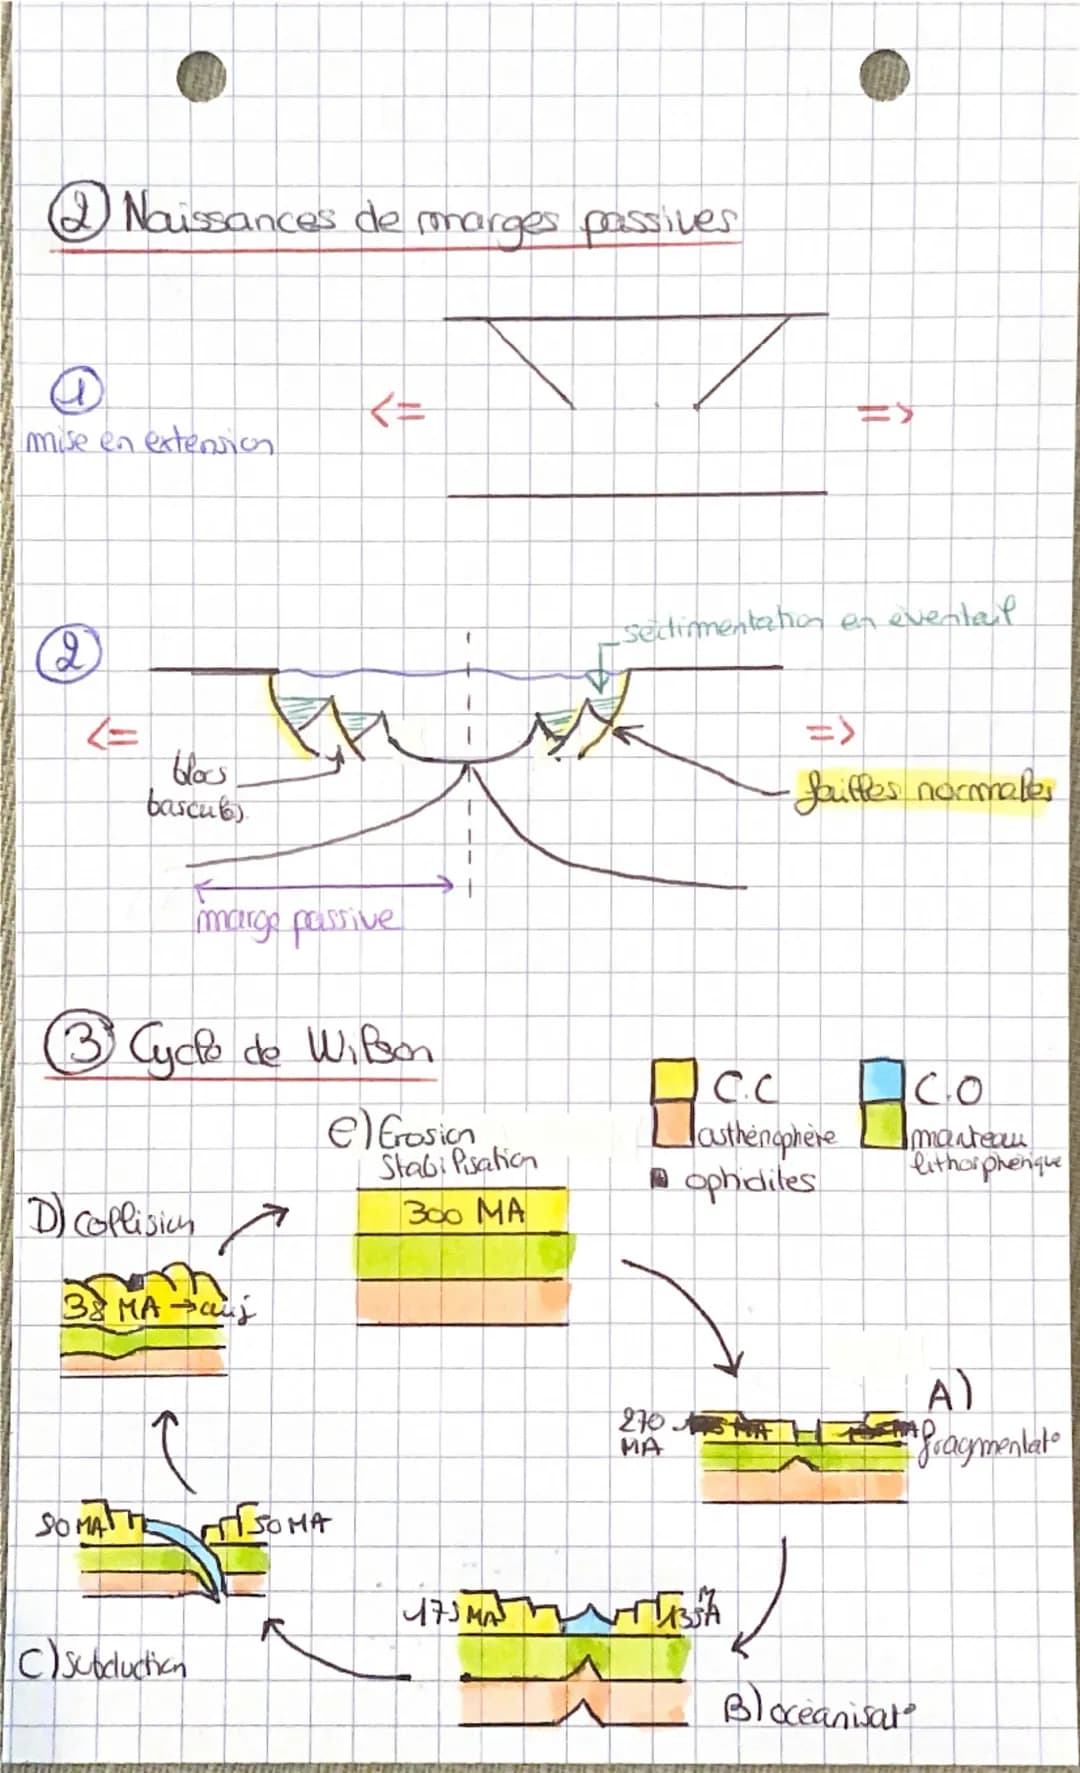 ② Naissances de marges passives
①
<= =>
mise en extension
sédimentation en éventail
②
<= =>
blocs
basculés
failles normales
marge passive
③ Cycle de Wilson
C.C C.O
asthénophère manteau
lithosphérique
ophidites
e) Erosion
Stabilisation
300 MA
D) collision
38 MA → auj
A)
270
MA
fragmentat°
80 MA 50 MA
175 MA 135 MA
C) subduction
B) océanisat°